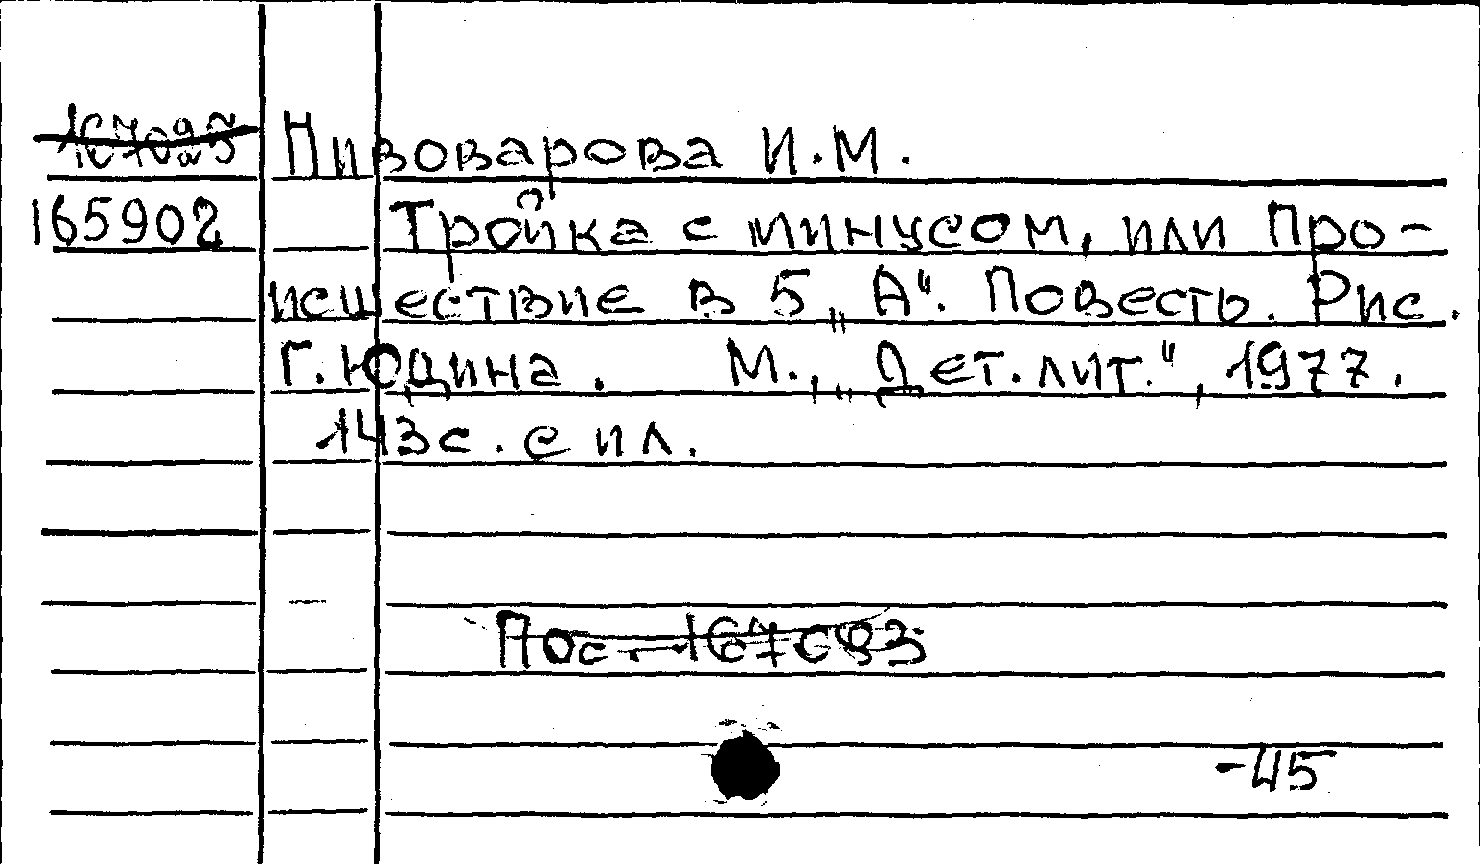 Пивоварова И.М.
165902 Тройка с минусом, или Про-
исшествие в 5 „А“. Повесть. Рис.
Г. Юдина. М., „Дет. лит.“, 1977.
143 с. с ил.
Пос.
-45